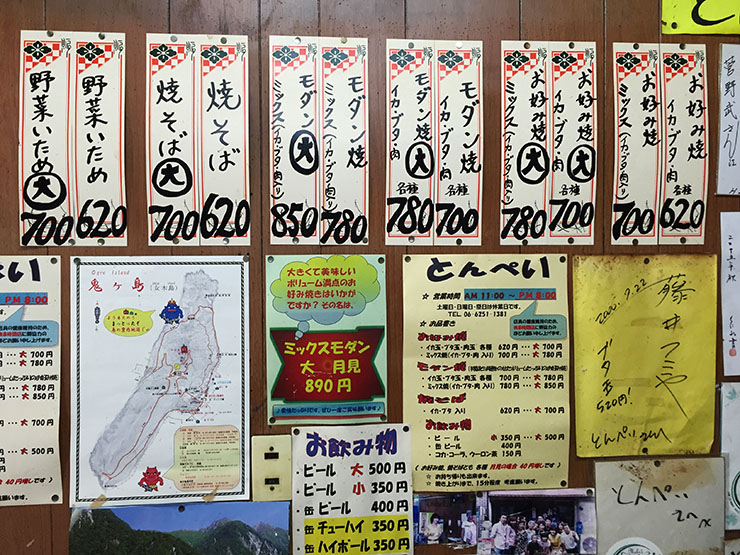 野菜いため 大 700
野菜いため 620
焼そば 大 700
焼そば 620
モダン焼 大 ミックス(イカ・ブタ・肉入り) 850
モダン焼 ミックス(イカ・ブタ・肉入り) 780
モダン焼 大 イカ・ブタ・肉 各種 780
モダン焼 イカ・ブタ・肉 各種 700
お好み焼 大 ミックス(イカ・ブタ・肉入り) 780
お好み焼 大 イカ・ブタ・肉 各種 700
お好み焼 ミックス(イカ・ブタ・肉入り) 700
お好み焼 イカ・ブタ・肉 各種 620
菅野武さん江
ぺい
PM 8:00
大 700円
大 780円
大 780円
大 850円
大 700円
大 500円
350円
150円
Ogre Island
鬼ヶ島(女木島)
大きくて美味しい
ボリューム満点のお
好み焼きはいかが
ですか?その名は、
ミックスモダン
大 月見
890円
とんぺい
☆ 営業時間 AM 11:00 ~ PM 8:00
土曜日・日曜日・祭日は休業日です。
TEL 06-6251-1381
☆ お品書き
お好み焼
・イカ玉・ブタ玉・肉玉 各種 620円 … 大 700円
・ミックス焼(イカ・ブタ・肉 入り) 700円 … 大 780円
モダン焼
・イカ・ブタ・肉 各種 700円 … 大 780円
・ミックス焼(イカ・ブタ・肉 入り) 780円 … 大 850円
焼そば
・イカ・ブタ 入り 620円 … 大 700円
お飲み物
・ビール 小 350円 … 大 500円
・缶 ビール 400円
・コカ・コーラ、ウーロン茶 150円
(お好み焼、焼そばとも 各種 月見の場合 40円 増しです)
☆ お持ち帰りも出来ます。
☆ 焼き上がりまで、15分程度
藤井フミヤ
ブタ玉
520円!
とんぺい
お飲み物
ビール 大 500円
ビール 小 350円
缶 ビール 400円
缶 チューハイ 350円
缶 ハイボール 350円
とんぺい
さんへ